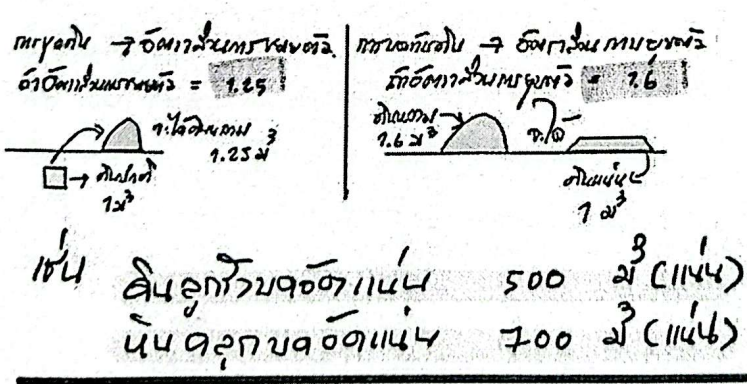 การขุดดิน → อัตราส่วนการขยายตัว
ถ้าอัตราส่วนการขยายตัว = 1.25
จะได้ดินหลวม
1.25 ม³
→ ดินปกติ
1 ม³
การบดทับดิน → อัตราส่วนการยุบตัว
ถ้าอัตราส่วนการยุบตัว = 1.6
ดินหลวม
1.6 ม³
ดินแน่น
1 ม³
เช่น ดินลูกรังบดอัดแน่น 500 ม³ (แน่น)
หินคลุกบดอัดแน่น 700 ม³ (แน่น)